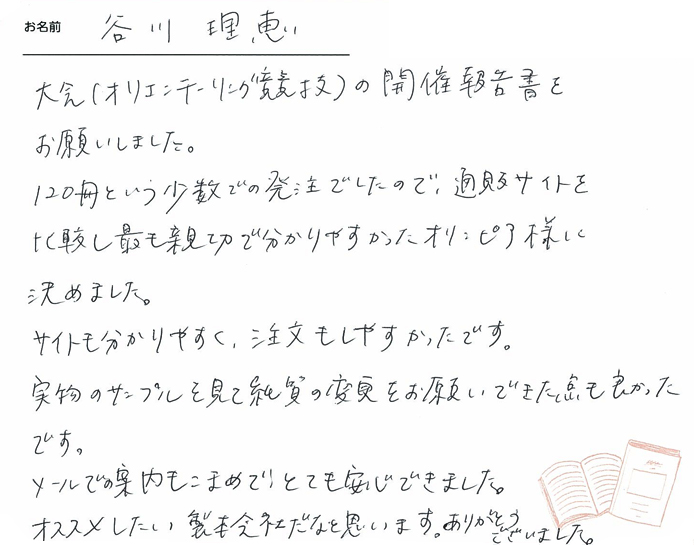 お名前 谷川 理恵
大会(オリエンテーリング競技)の開催報告書を
お願いしました。
120冊という少数での発注でしたので、通販サイトを
比較し最も親切で分かりやすかったオリンピア様に
決めました。
サイトも分かりやすく、注文もしやすかったです。
実物のサンプルを見て紙質の変更をお願いできた点も良かった
です。
メールでの案内もこまめで、とても安心できました。
オススメしたい製本会社だなと思います。ありがとう
ございました。